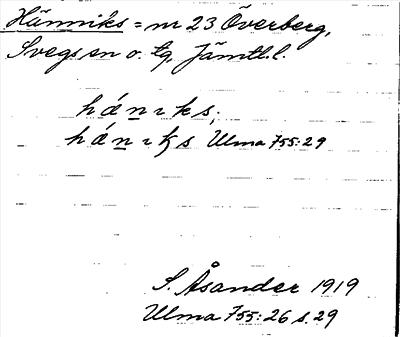 Hänniks = nr 23 Överberg,
Svegs sn o. tg, Jämtl. l.
hánıks,
hánıks Ulma 755:29
S. Åsander 1919
Ulma 755:26 s. 29